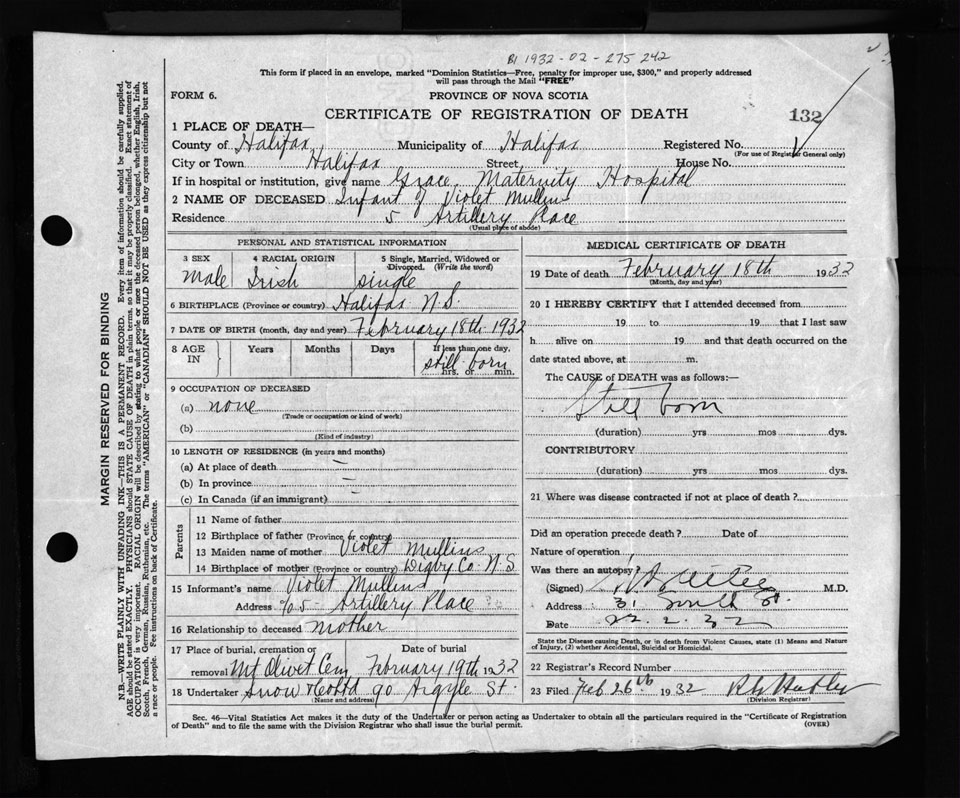 B1 1932-02-275 242
This form if placed in an envelope, marked "Dominion Statistics—Free, penalty for improper use, $300," and properly addressed
will pass through the Mail "FREE"
FORM 6.
PROVINCE OF NOVA SCOTIA
CERTIFICATE OF REGISTRATION OF DEATH
132
1 PLACE OF DEATH—
County of Halifax Municipality of Halifax Registered No.
(For use of Registrar General only)
City or Town Halifax Street House No.
If in hospital or institution, give name Grace Maternity Hospital
2 NAME OF DECEASED Infant of Violet Mullins
Residence 5 Artillery Place
(Usual place of abode)
PERSONAL AND STATISTICAL INFORMATION
3 SEX 4 RACIAL ORIGIN 5 Single, Married, Widowed or Divorced. (Write the word)
male Irish single
6 BIRTHPLACE (Province or country) Halifax N.S.
7 DATE OF BIRTH (month, day and year) February 18th 1932
8 AGE IN Years Months Days If less than one day,
still born
hrs. or min.
9 OCCUPATION OF DECEASED
(a) none
(Trade or occupation or kind of work)
(b)
(Kind of industry)
10 LENGTH OF RESIDENCE (in years and months)
(a) At place of death —
(b) In province —
(c) In Canada (if an immigrant) —
Parents
11 Name of father
12 Birthplace of father (Province or country)
13 Maiden name of mother Violet Mullins
14 Birthplace of mother (Province or country) Digby Co. N.S
15 Informant's name Violet Mullins
Address 5 Artillery Place
16 Relationship to deceased mother
17 Place of burial, cremation or removal Date of burial
Mt Olivet Cem February 19th 1932
18 Undertaker Snow & Co Ltd 90 Argyle St.
(Name and address)
MEDICAL CERTIFICATE OF DEATH
19 Date of death February 18th 1932
(Month, day and year)
20 I HEREBY CERTIFY that I attended deceased from
19 to 19 that I last saw
h alive on 19 and that death occurred on the
date stated above, at m.
The CAUSE of DEATH was as follows:—
Still born
(duration) yrs mos dys.
CONTRIBUTORY
(duration) yrs mos dys.
21 Where was disease contracted if not at place of death ?
Did an operation precede death ? Date of
Nature of operation
Was there an autopsy?
(Signed) M.D.
Address 31 South St.
Date 22.2.32
State the Disease causing Death, or in death from Violent Causes, state (1) Means and Nature
of Injury, (2) whether Accidental, Suicidal or Homicidal.
22 Registrar's Record Number
23 Filed Feb 26th 1932
(Division Registrar)
Sec. 46—Vital Statistics Act makes it the duty of the Undertaker or person acting as Undertaker to obtain all the particulars required in the "Certificate of Registration
of Death" and to file the same with the Division Registrar who shall issue the burial permit.
(OVER)
MARGIN RESERVED FOR BINDING
N.B.—WRITE PLAINLY WITH UNFADING INK—THIS IS A PERMANENT RECORD. Every item of information should be carefully supplied.
AGE should be stated EXACTLY. PHYSICIANS should STATE CAUSE OF DEATH in plain terms, so that it may be properly classified. Exact statement of
OCCUPATION is very important. RACIAL ORIGIN will be described by stating to what people or race the deceased person belonged, whether English, Irish,
Scotch, French, German, Russian, Ruthenian, etc. The terms "AMERICAN" or "CANADIAN" SHOULD NOT BE USED as they express citizenship but not
a race or people. Fee instructions on back of Certificate.